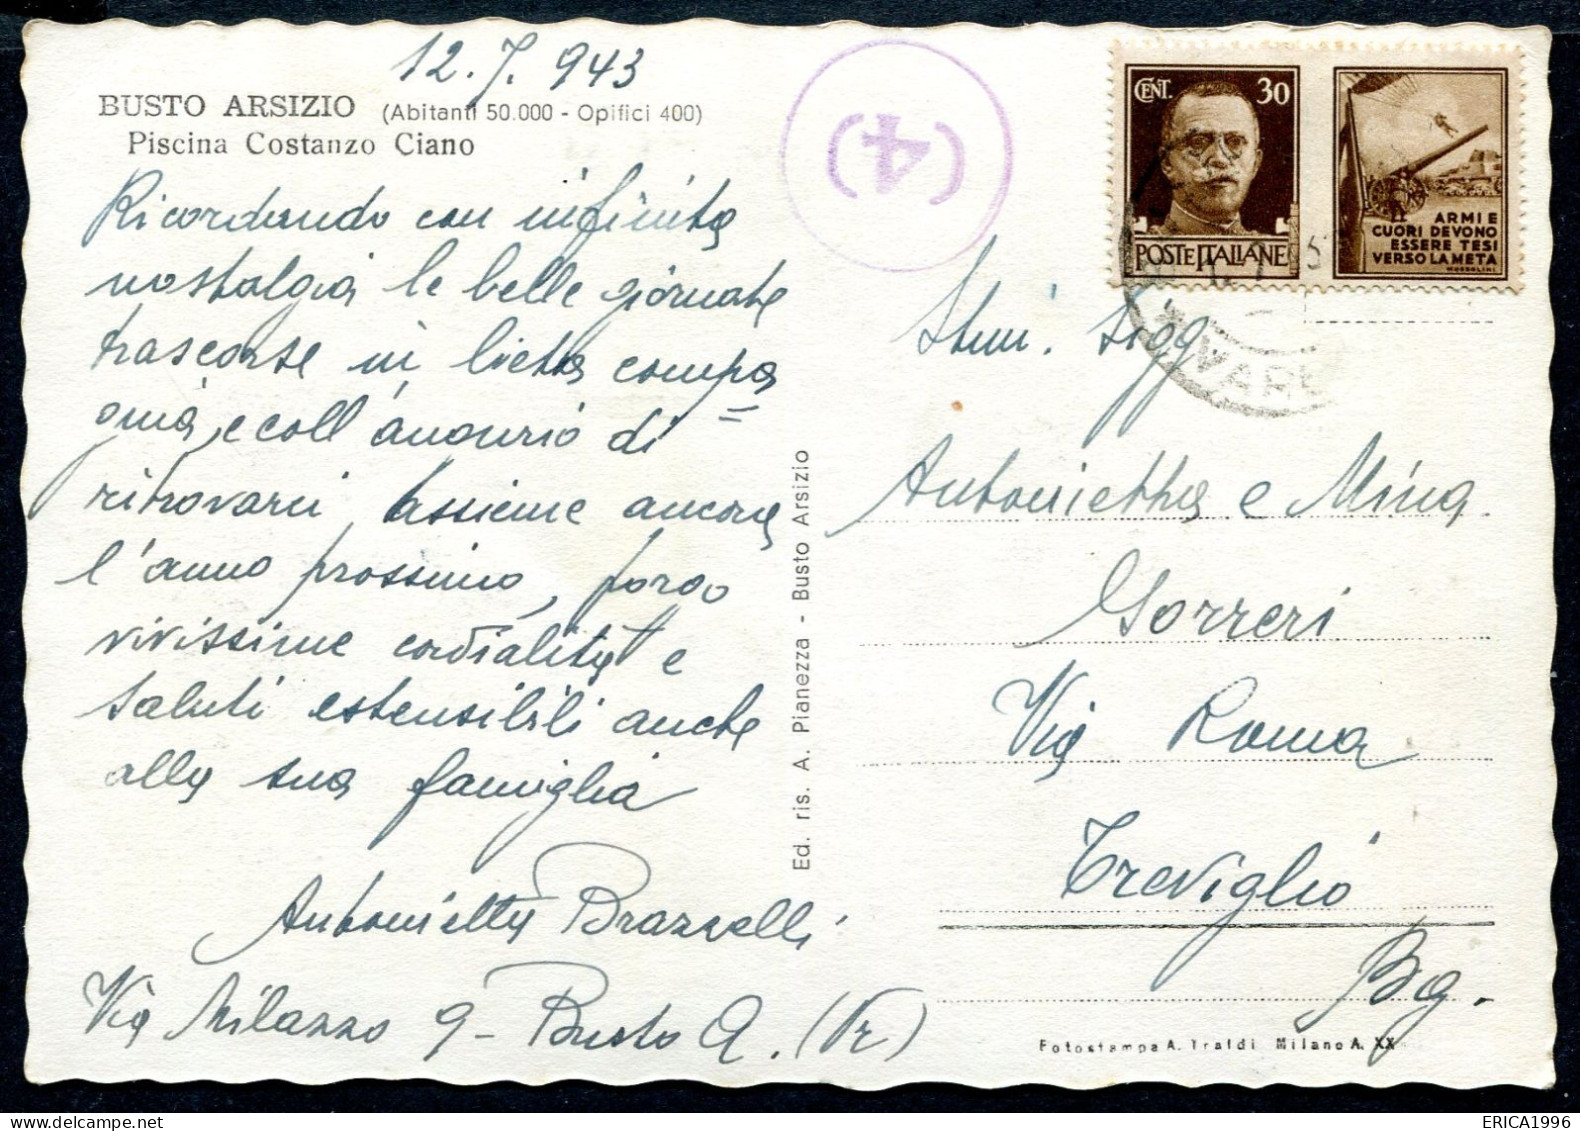 12.7.943
BUSTO ARSIZIO (Abitanti 50.000 - Opifici 400)
Piscina Costanzo Ciano
Ricordando con infinita
nostalgia le belle giornate
trascorse in lieta compa=
gnia, e coll'augurio di
ritrovarci assieme ancora
l'anno prossimo, porgo
vivissime cordialità e
saluti estensibili anche
alla sua famiglia
Antonietta Brazzelli
Via Milazzo 9 - Busto A. (Va)
Ed. ris. A. Pianezza - Busto Arsizio
(4)
CENT. 30
POSTE ITALIANE
ARMI E
CUORI DEVONO
ESSERE TESI
VERSO LA META
MUSSOLINI
Stim. Sigg
Antonietta e Mina
Gorreri
Via Roma
Treviglio
Bg.
Fotostampa A. Traldi Milano A. XX
ERICA1996